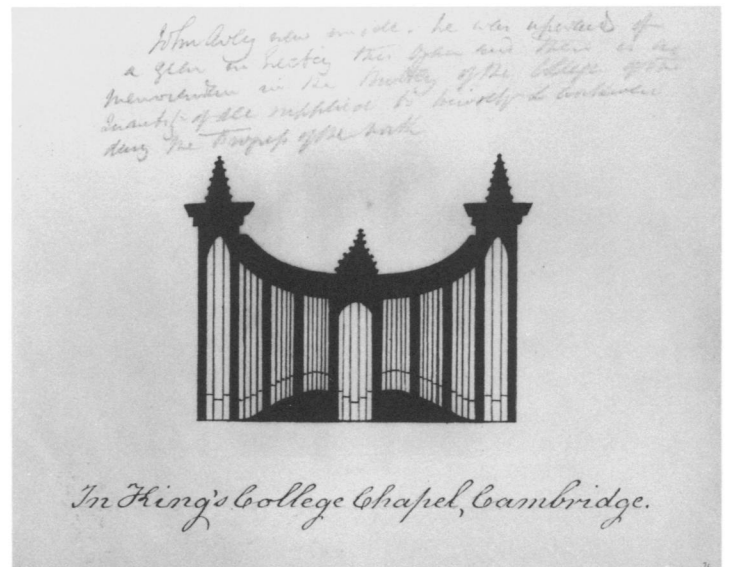 John Avery new made. he was upwards of
a year in Erecting this Organ and there is a
memorandum in the Muniments of the College of the
Quantity of Ale supplied to himself & workmen
during the Progress of the work
In King's College Chapel, Cambridge.